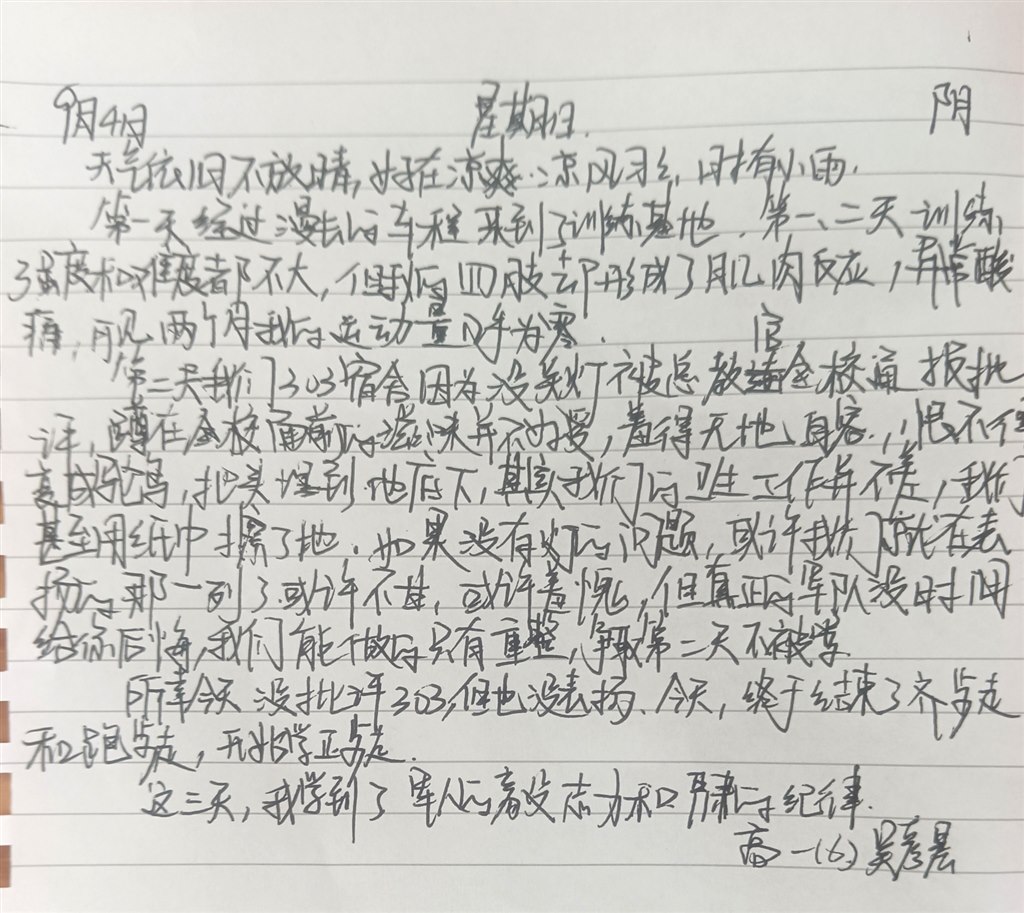 9月4日 星期日. 阴
天气依旧不放晴,好在凉爽.凉风习习,时有小雨.
第一天经过漫长的车程来到了训练基地.第一、二天训练
强度和难度都不大,但我的四肢却形成了肌肉反应,异常酸
痛,可见两个月我的运动量几乎为零.
第二天我们303宿舍因为没关灯被总教官全校通报批
评,蹲在全校面前的滋味并不好受,羞得无地自容,恨不得
变成鸵鸟,把头埋到地底下,其实我们的卫生工作并不差,我们
甚至用纸巾擦了地.如果没有灯的问题,或许我们就在表
扬的那一列了.或许不甘,或许羞愧,但真正的军队没时间
给你后悔,我们能做的只有重整,争取第二天不被骂.
所幸今天没批评303,但也没表扬.今天,终于结束了齐步走
和跑步走,开始学正步走.
这三天,我学到了军人的意志力和严肃的纪律.
高一(6)吴彦